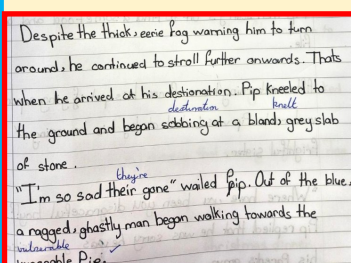 Despite the thick, eerie fog warning him to turn
around, he continued to stroll further onwards. Thats
when he arrived at his destionation. Pip kneeled to
destination knelt
the ground and began sobbing at a bland, grey slab
of stone.
they're
"I'm so sad their gone" wailed Pip. Out of the blue,
a ragged, ghastly man began walking towards the
vulnerable
Pip.